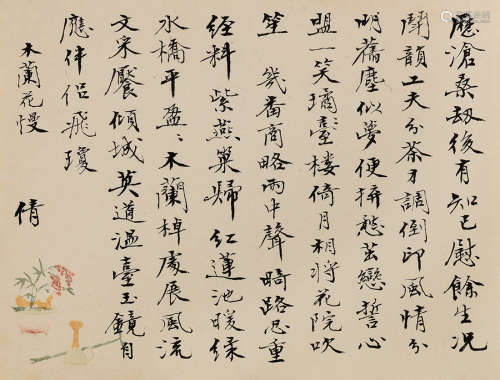 歷滄桑劫後有知己慰餘生況
鬭韻工夫分茶才調倒印風情分
明舊塵似夢便拚愁戀誓心
盟一笑璚臺樓倚月相將花院吹
笙 幾番商略雨中聲畸路思重
經料紫燕巢歸紅蓮池暖綠
水橋平盈〻木蘭棹處展風流
文采饜傾城莫道溫臺玉鏡自
應伴侶飛瓊
木蘭花慢
倩